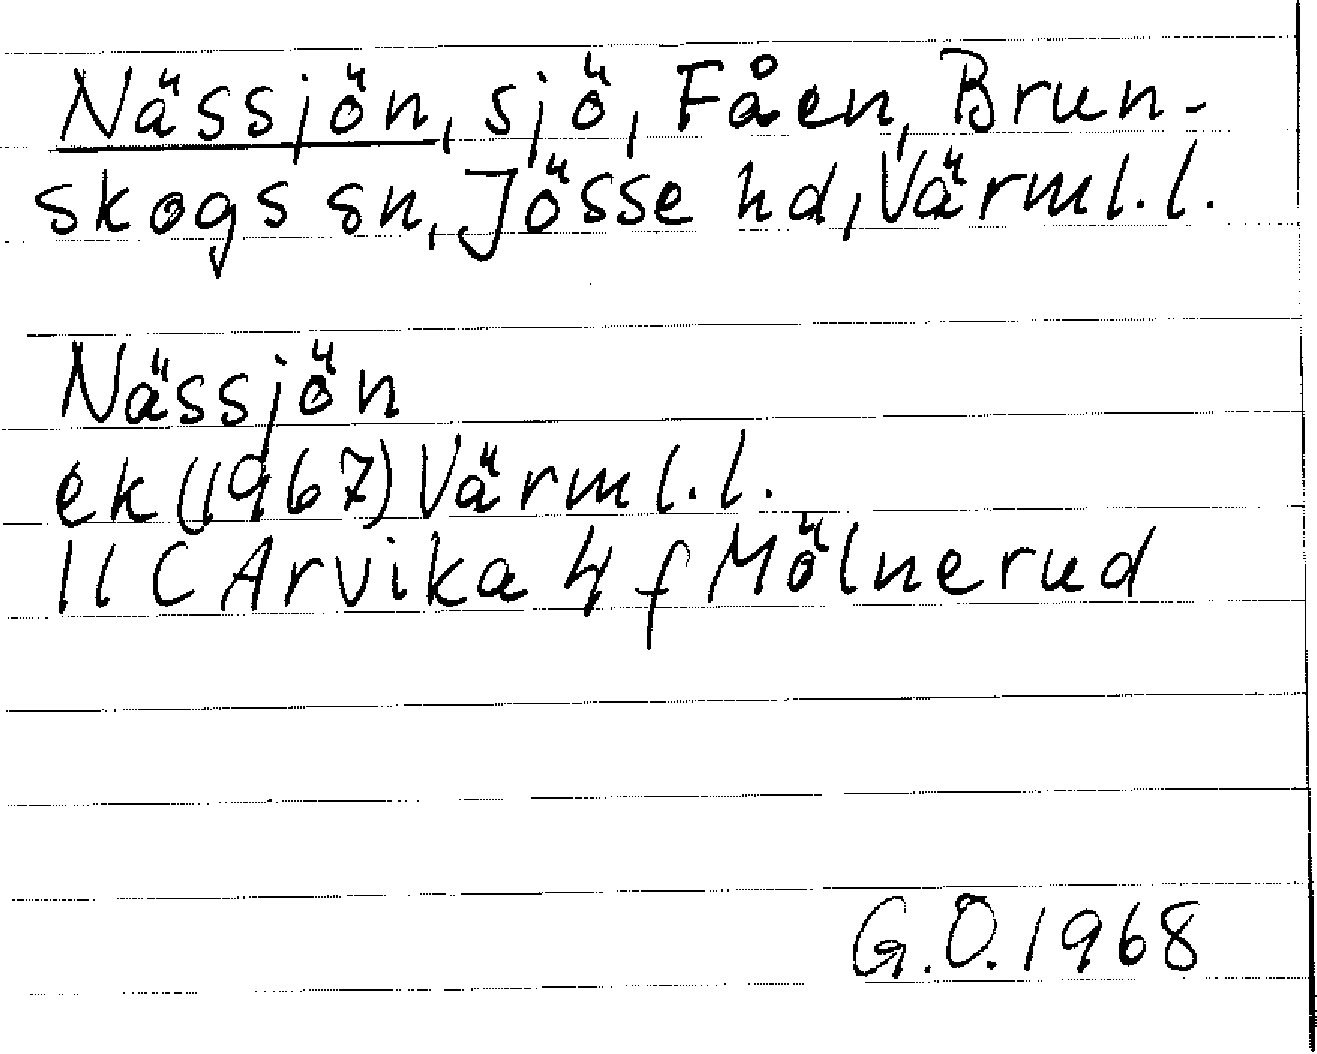 Nässjön, sjö, Fåen, Brun-
skogs sn, Jösse hd, Värml. l.
Nässjön
ek (1967) Värml. l.
11 C Arvika 4 f Mölnerud
G.O. 1968